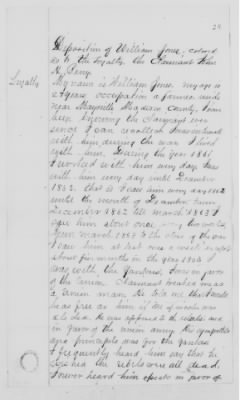 Deposition of William Jones, colored
as to the loyalty, the Claimant John
H.
Loyalty
My name is William Jones, my age is
years occupation a farmer reside
near Maysville Madison County, I have
been knowing the Claimant ever
since I can recollect I was
with him during the war I lived
with him, During the year 1861
I worked with him every day I was
with him every day until December
1862, that is I saw him every day
until the month of December from
December 1862 till March 1863 I
saw him about once every two weeks
from March 1863 to the close of the war
I saw him at least once a week except
about five months in the year 1864 I
was with the Yankees, I was in favor
of the Union Claimant talked as a
Union man, He told me that I would
be as free as him if the
He was opposed to the rebels and
in favor of the union army His sympathies
and principals was for the Yankees
I frequently heard him say that he
wished the rebels were all dead.
I never heard him speak in favor of